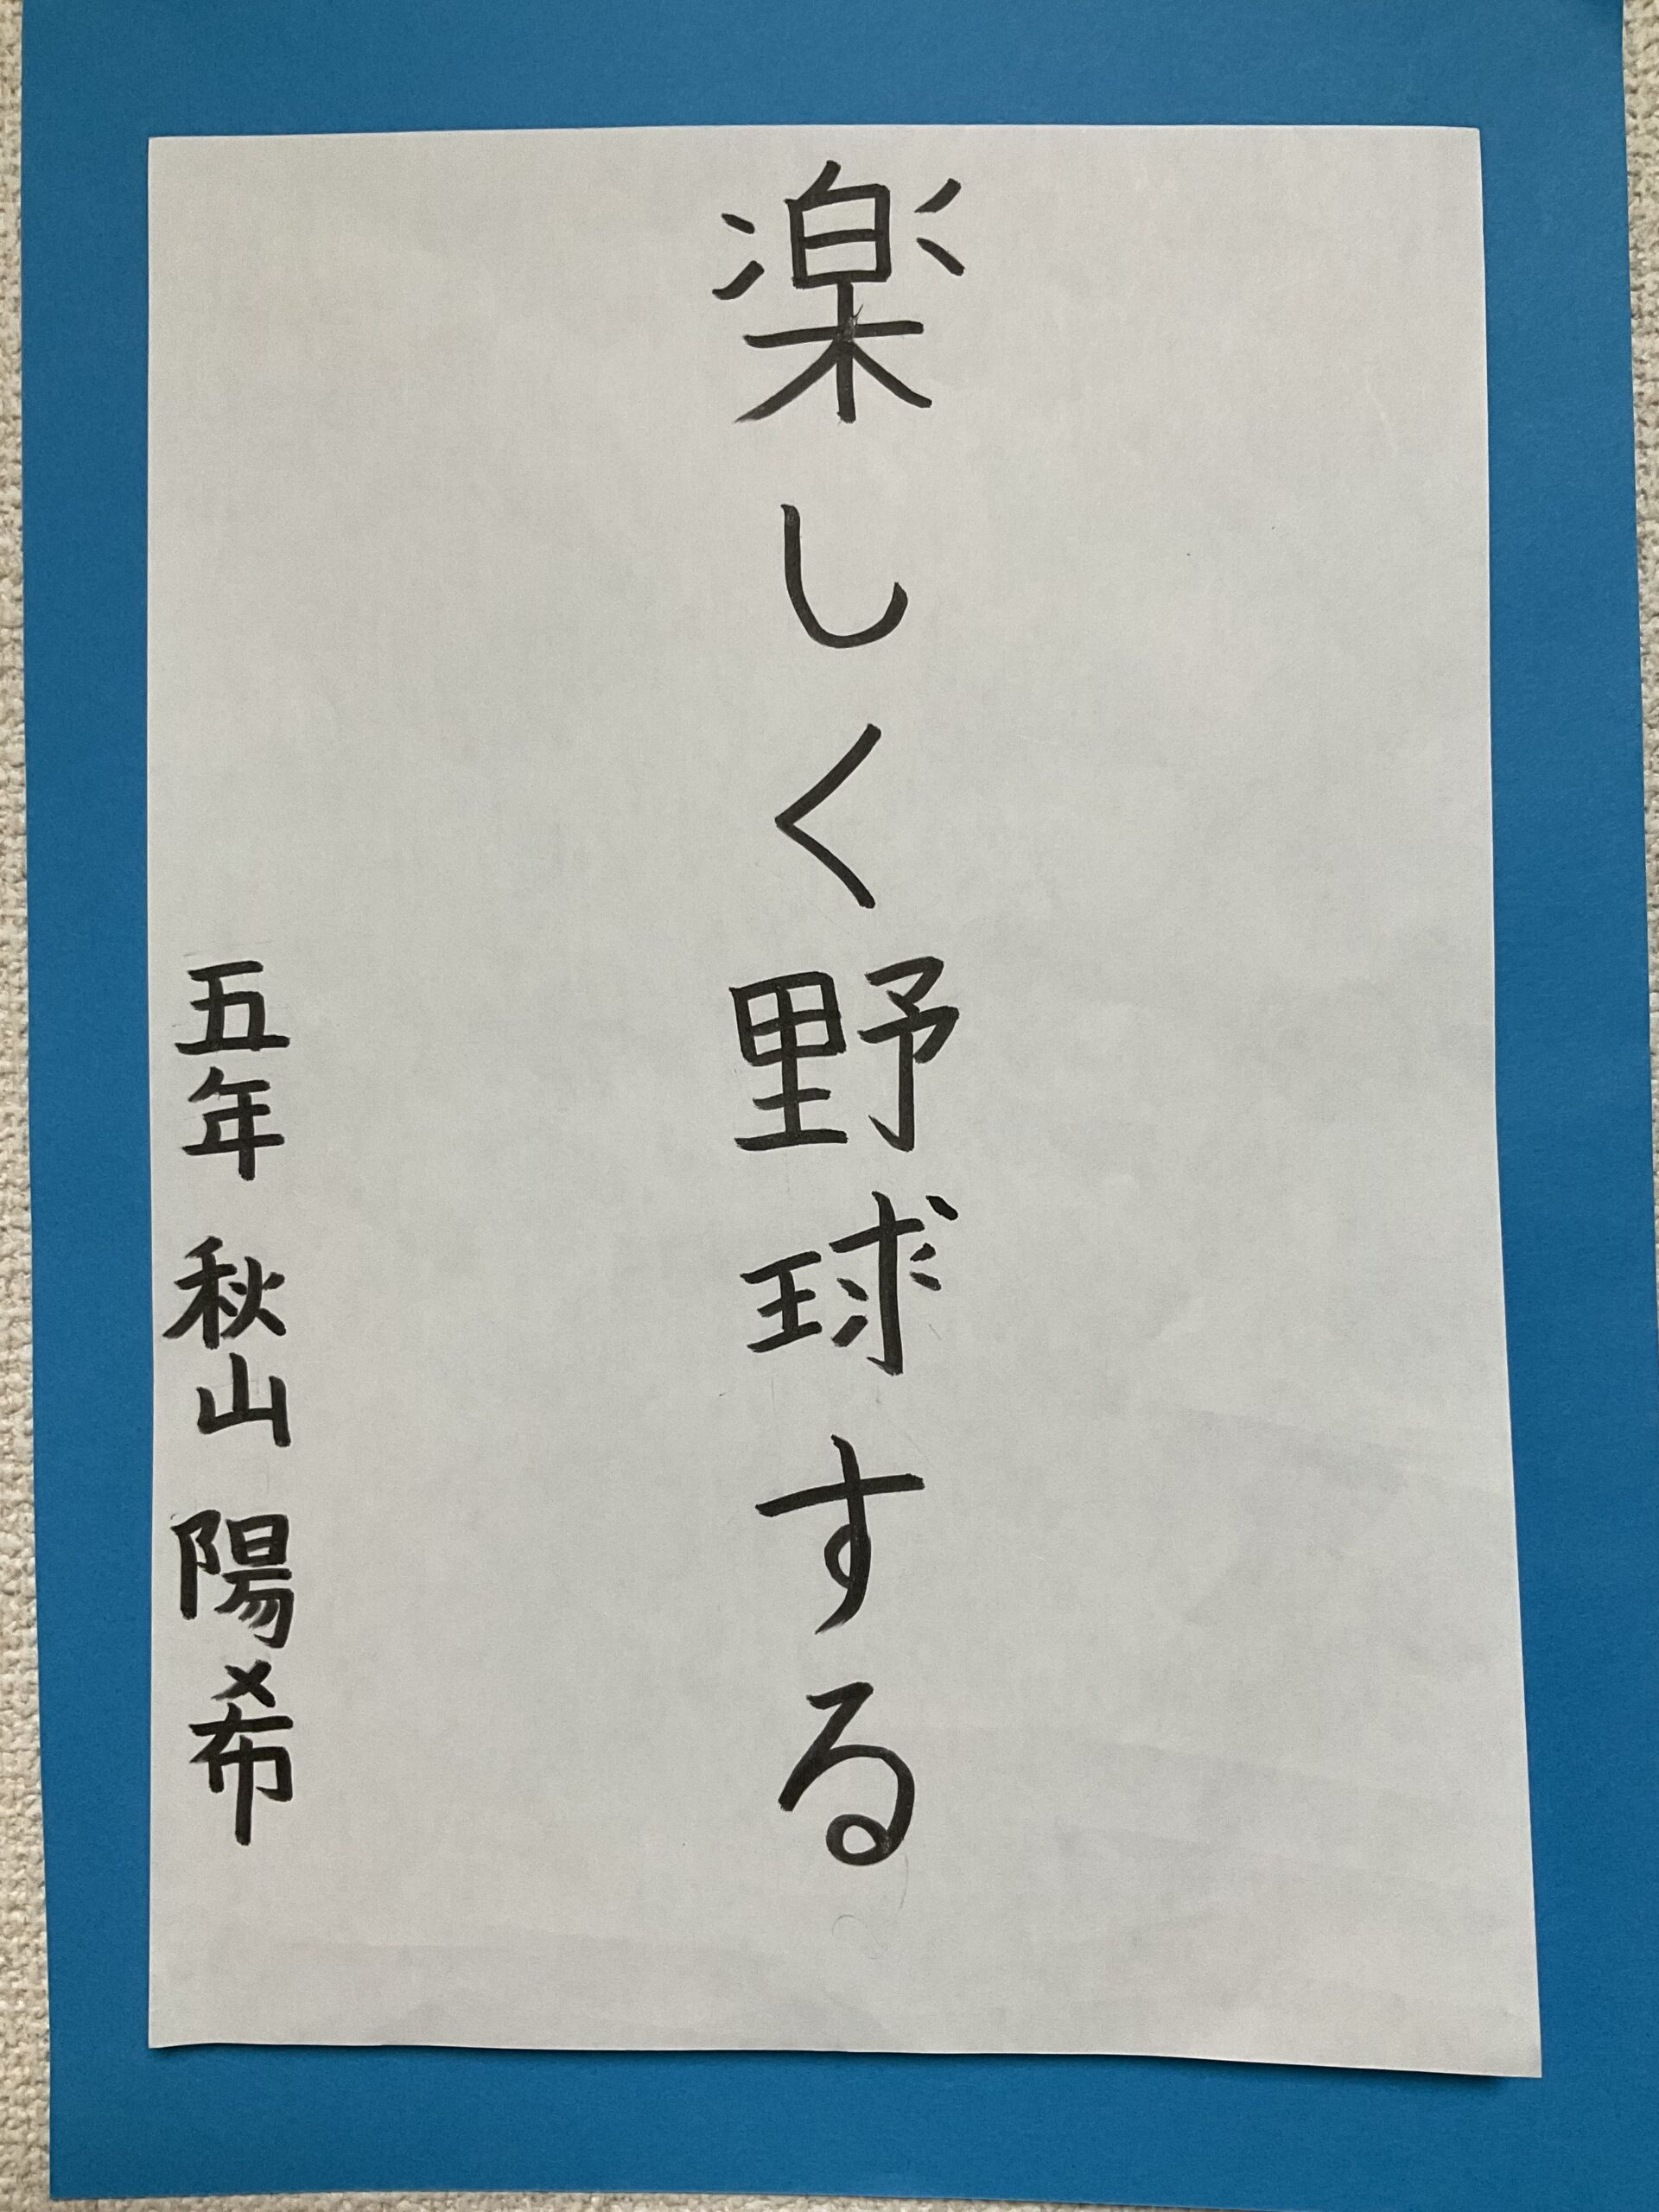 楽しく野球する
五年 秋山 陽希